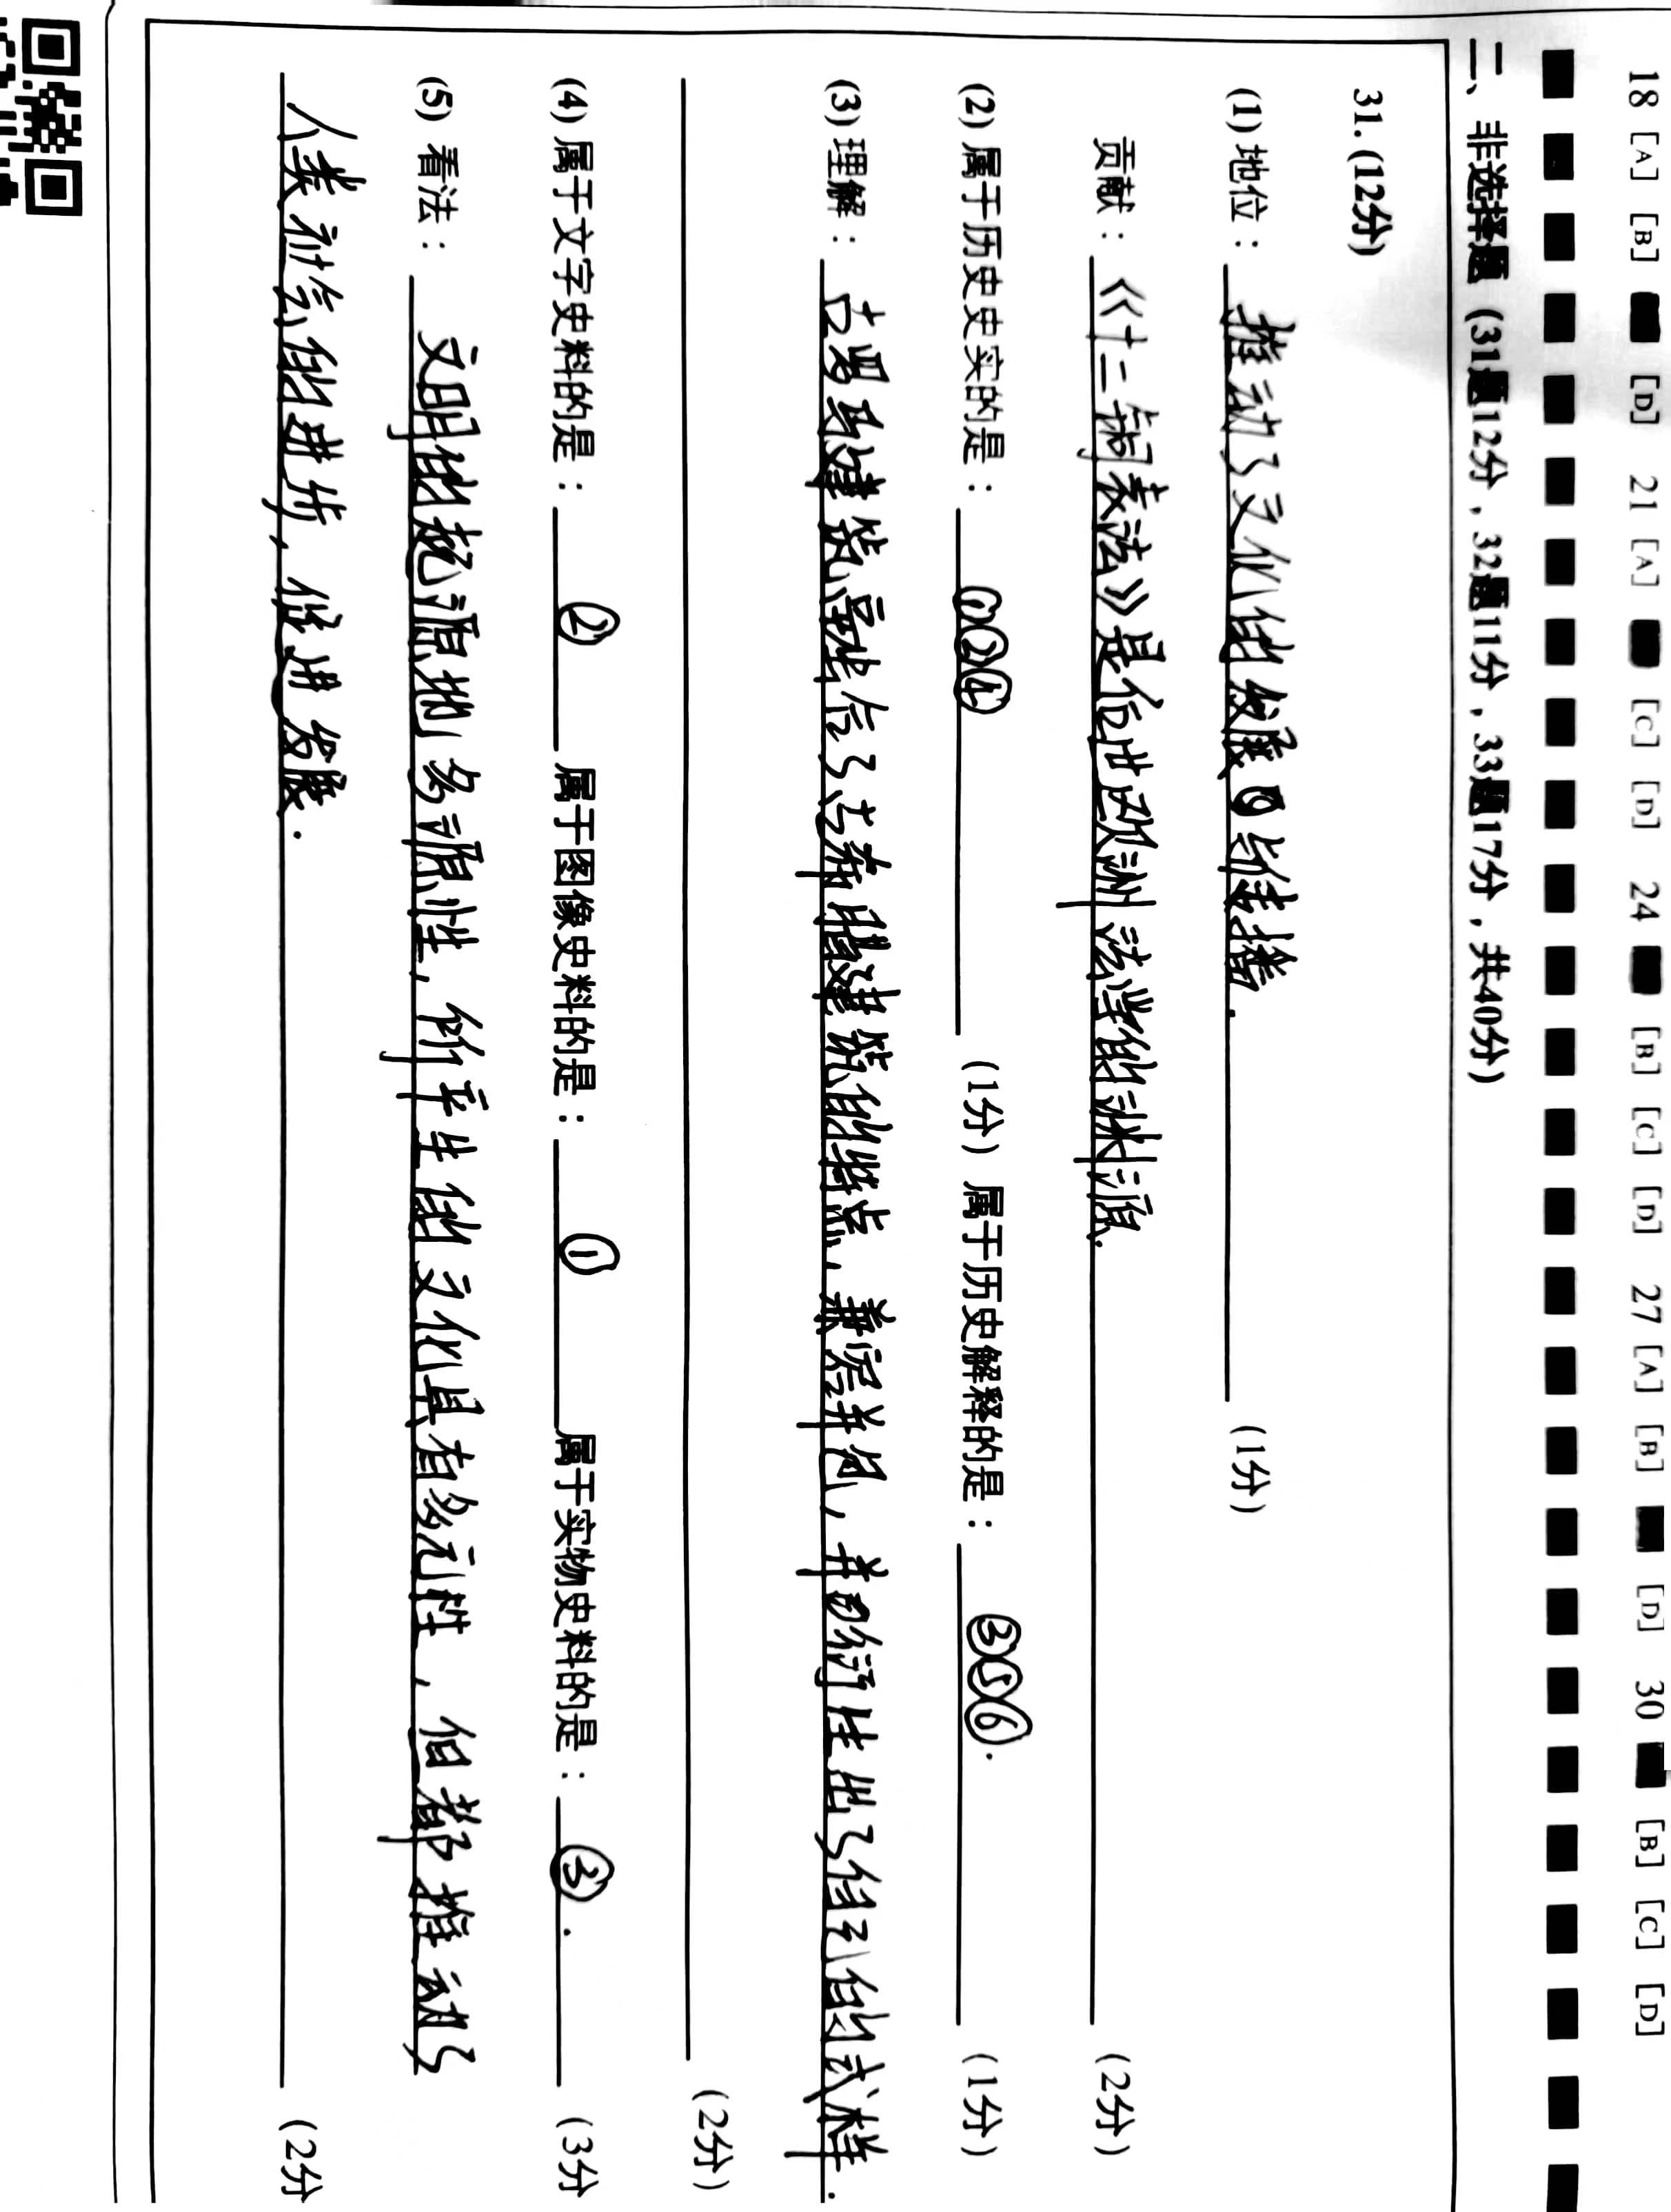 18 [A] [B] [D] 21 [A] [C] [D] 24 [B] [C] [D] 27 [A] [B] [D] 30 [B] [C] [D]
二、非选择题（31题12分，32题11分，33题17分，共40分）
31.(12分)
(1) 地位： 推动了文化的发展与传播. (1分)
贡献： 《十二铜表法》是后世欧洲法学的渊源. (2分)
(2) 属于历史史实的是： ①②④ (1分) 属于历史解释的是： ③⑤⑥. (1分)
(3) 理解： 古罗马建筑吸收借鉴了古希腊建筑的特点，兼容并包，并衍生出了自己的式样.
(2分)
(4) 属于文字史料的是： ② 属于图像史料的是： ① 属于实物史料的是： ③. (3分
(5) 看法： 文明的起源地多源性，所产生的文化具有多元性，但都推动了
人类社会的进步，促进发展. (2分